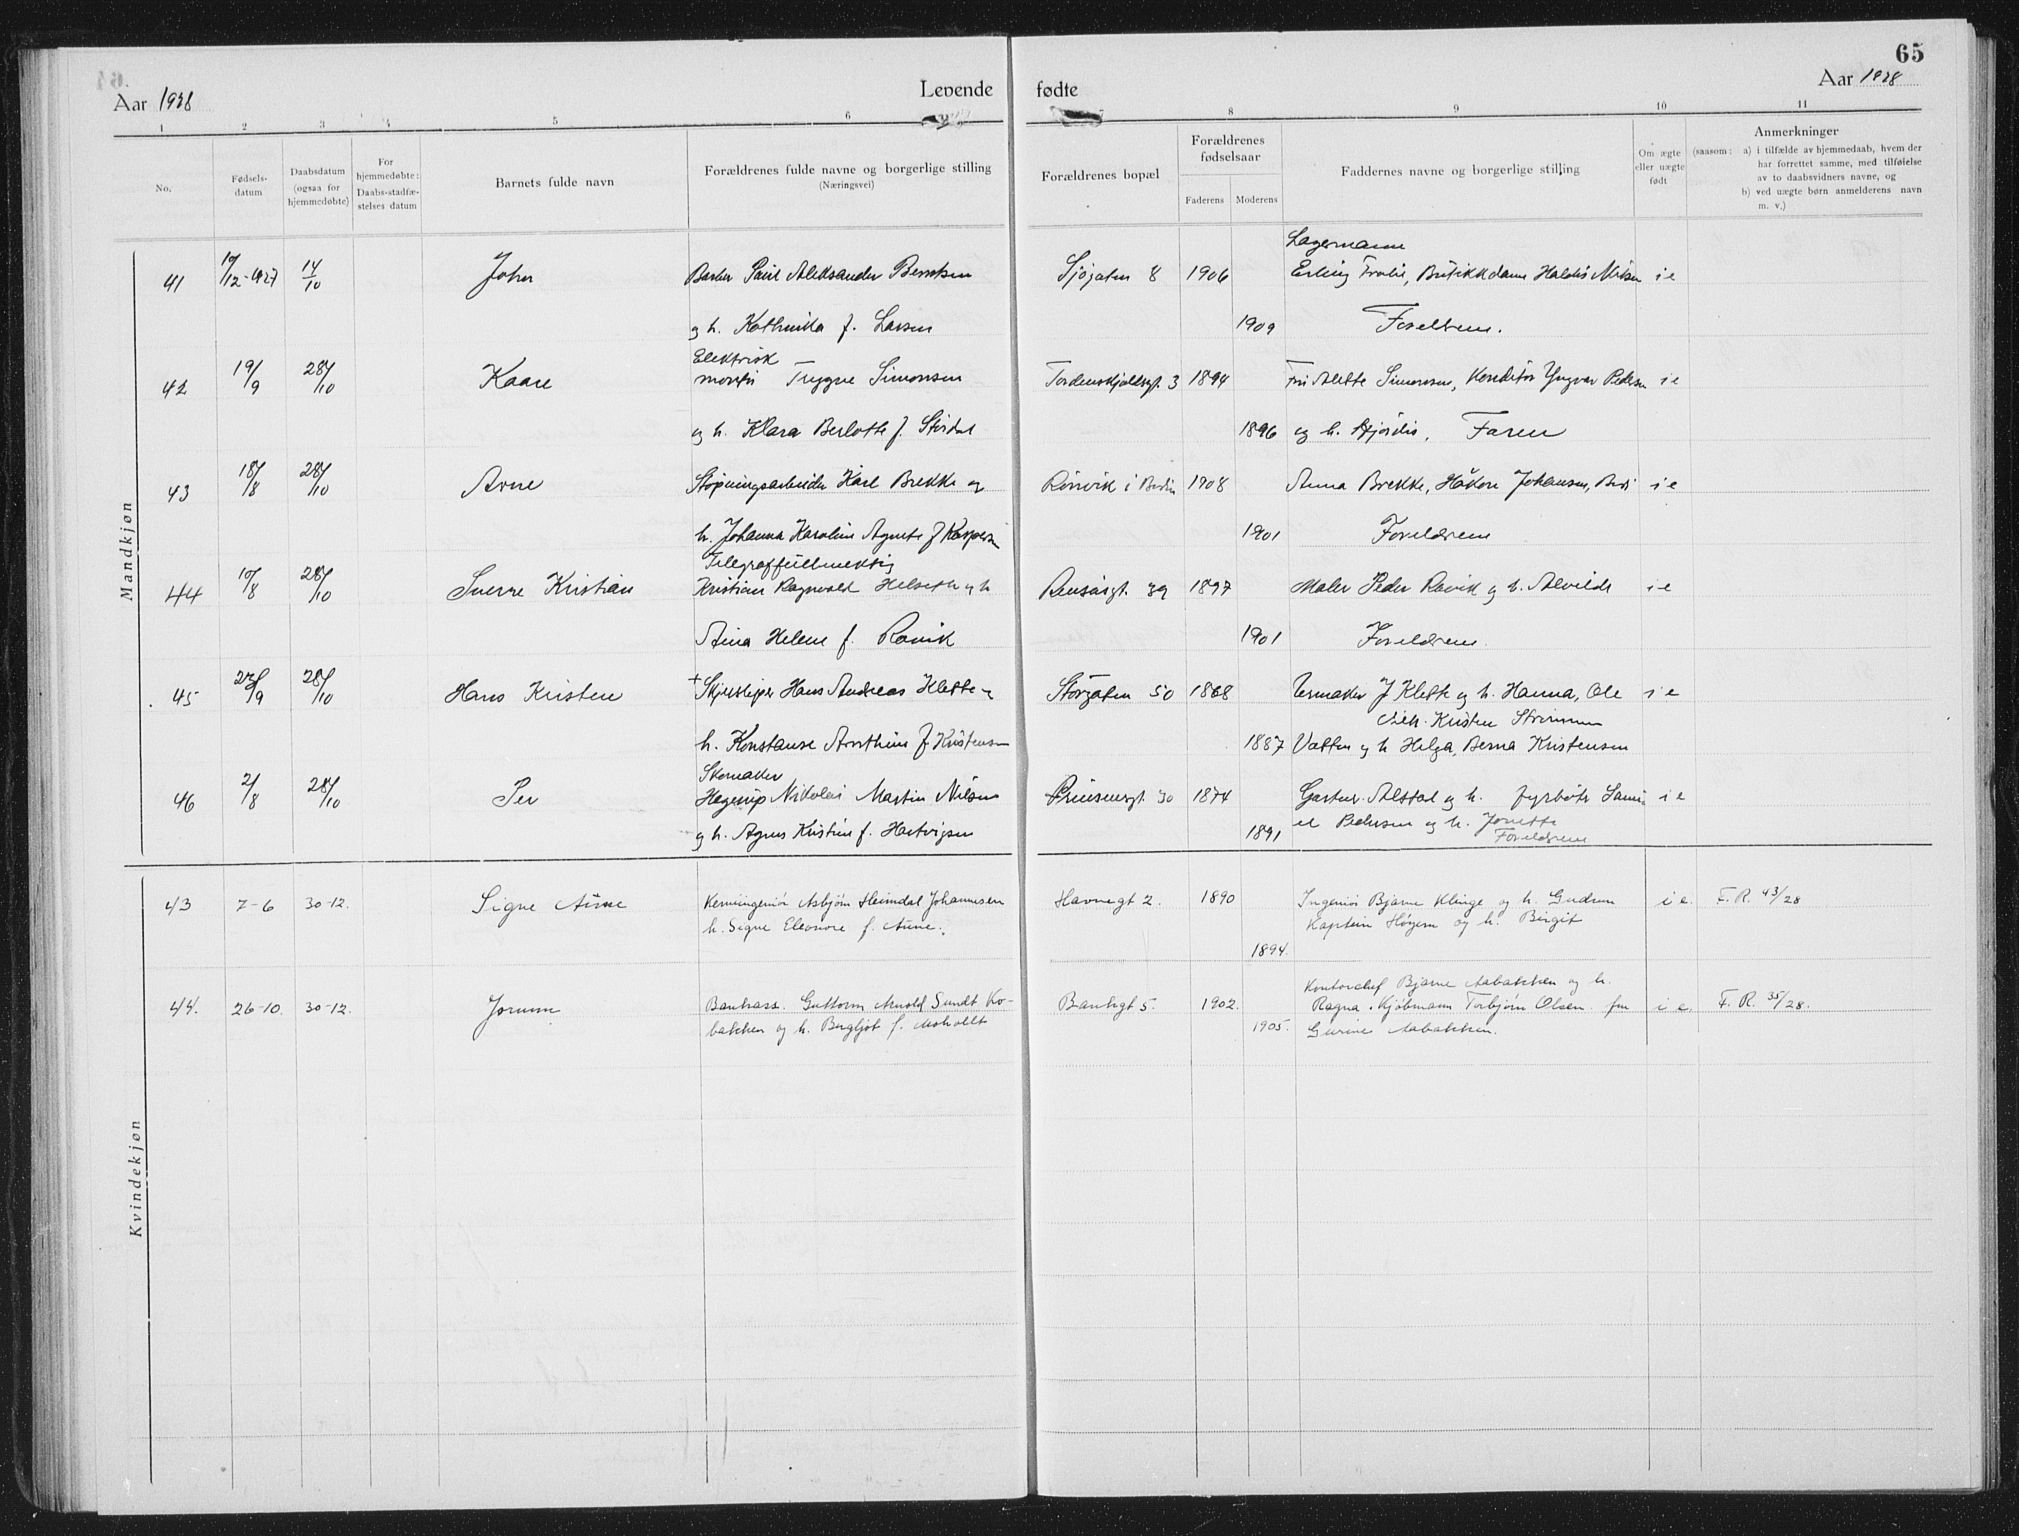 65
Aar 1928
Levende fødte
Aar 1928
1 2 3 4 5 6 8 9 10 11
No.
Fødsels-
datum
Daabsdatum
(ogsaa for
hjemmedøbte)
For
hjemmedøbte:
Daabs-stadfæ-
stelses datum
Barnets fulde navn
Forældrenes fulde navne og borgerlige stilling
(Næringsvei)
Forældrenes bopæl
Forældrenes
fødselsaar
Faderens Moderens
Faddernes navne og borgerlige stilling
Om ægte
eller uægte
født
Anmerkninger
(saasom: a) i tilfælde av hjemmedaab, hvem der
har forrettet samme, med tilføielse
av to daabsvidners navne, og
b) ved uægte børn anmelderens navn
m. v.)
Mandkjøn
Lagermann
41 10/12-1927 14/10 John Barber Paul Aleksander Berntsen Sjøgaten 8 1906 Erling, Butikkdame Haldis Nilsen i e
og h. f. Larsen 1909 Foreldrene.
Elektrisk
42 19/9 28/10 Kaare montør Trygve Simonsen Tordenskjoldsgt. 3 1894 Fru Alette Simonsen, Konditor Yngvar Pedersen i e
og h. Klara Berlotte f. Stordal 1896 og h. Hjørdis, Faren
43 18/8 28/10 Arne Støpningsarbeider Kåre Brekke og Rønvik i Bodin 1908 Anna Brekke, Håkon Johansen, i e
h. Johanna Karoline Agnete f Kaspersen 1901 Foreldrene
Telegraffullmektig
44 10/8 28/10 Sverre Kristian Kristian Ragnvald Helseth og h Rensåsgt. 39 1897 Maler Peder Ravik og h. Alvilde i e
Aina Helene f. Ravik 1901 Foreldrene.
45 28/10 Hans Kristen + Hans Andreas Klette og Storgaten 50 1868 Urmaker J Klette og h. Hanna, Ole i e
Kristen
h. Konstanse f Kristensen 1887 Vatten og h Helga, Berna Kristensen
Skomaker
46 2/8 28/10 Per Hagerup Nikolai Martin Nilsen Prinsensgt. 30 1874 Gartner Alstad og h. fyrbøter Samu- i e
og h. Agnes Kristine f. Hartvigsen 1891 el Pedersen og h. Jonette
Foreldrene
Kvindekjøn
43 7-6 30-12. Signe Aune Kemiingeniør Asbjørn Heimdal Johannesen Havnegt 2. 1890 Ingeniør Bjarne Klinge og h. Gudrun i e. F. R. 43/28
h. Signe Eleonore f. Aune. Kaptein og h. Birgit
1894.
Kontorchef Bjarne Aabakken og h.
44. 26-10. 30-12. Jorunn Bankass. Guttorm Arnold Sundt Ko- Bankgt 5. 1902. Ragna. Kjøbmann Torbjørn Olsen. fru i e. F. R. 35/28.
bakken og h. Bergljot f. Moholdt 1905. Gurine Aabakken.